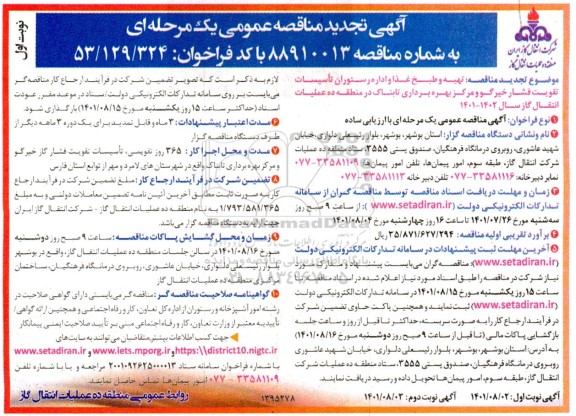 نوبت اول
آگهی تجدید مناقصه عمومی یک مرحله ای
به شماره مناقصه ۸۸۹۱۰۰۱۳ با کد فراخوان: ۵۳/۱۲۹/۳۲۴
شرکت انتقال گاز ایران
منطقه ده عملیات انتقال گاز
موضوع تجدید مناقصه: تهیه و طبخ غذا و اداره رستوران تأسیسات
تقویت فشار خیرگو و مرکز بهره برداری تابناک در منطقه ده عملیات
انتقال گاز سال ۱۴۰۲-۱۴۰۱
نوع فراخوان: آگهی مناقصه عمومی یک مرحله ای با ارزیابی ساده
نام و نشانی دستگاه مناقصه گزار: استان بوشهر، بوشهر، بلوار رئیسعلی دلواری، خیابان
شهید عاشوری، روبروی درمانگاه فرهنگیان، صندوق پستی ۳۵۵۵، منطقه ده عملیات
انتقال گاز، طبقه سوم، امور پیمان‌ها، تلفن امور پیمان‌ها: ۳۳۵۸۱۱۰۹-۰۷۷
نمابر دبیرخانه: ۳۳۵۸۱۱۱۶-۰۷۷ تلفن دبیرخانه ۳۳۵۸۱۱۱۳-۰۷۷
زمان و مهلت دریافت اسناد مناقصه توسط مناقصه گران از سامانه
تدارکات الکترونیکی دولت (www.setadiran.ir): از ساعت ۹ صبح روز
سه شنبه مورخ ۱۴۰۱/۰۷/۲۶ تا ساعت ۱۶ روز چهارشنبه مورخ ۱۴۰۱/۰۸/۰۴
برآورد تقریبی اولیه مناقصه: ۳۵/۸۷۱/۶۲۷/۲۹۴ ریال
آخرین مهلت ثبت پیشنهادات در سامانه تدارکات الکترونیکی دولت
(www.setadiran.ir): مناقصه گران می‌بایست پیشنهاد و اسناد مورد
نیاز شرکت در مناقصه را طبق اسناد مورد نیاز اعلام شده در اسناد مناقصه تا
ساعت ۱۵ روز یکشنبه مورخ ۱۴۰۱/۰۸/۱۵ در سامانه تدارکات الکترونیکی دولت
(www.setadiran.ir) ثبت نمایند و همچنین پاکت حاوی تضمین شرکت
در فرآیند ارجاع کار را به صورت سربسته، حداکثر تا قبل از روز و ساعت جلسه
بازگشایی پاکات مالی (تا قبل از ساعت ۹ صبح روز دوشنبه مورخ ۱۴۰۱/۰۸/۱۶)
به آدرس: استان بوشهر، بوشهر، بلوار رئیسعلی دلواری، خیابان شهید عاشوری
روبروی درمانگاه فرهنگیان، صندوق پستی ۳۵۵۵، منطقه ده عملیات انتقال
گاز، طبقه سوم، امور پیمان‌ها تحویل داده و رسید دریافت نمایند.
تاریخ آگهی نوبت اول: ۱۴۰۱/۰۸/۰۲ تاریخ آگهی نوبت دوم: ۱۴۰۱/۰۸/۰۳
لازم به ذکر است که تصویر تضمین شرکت در فرآیند ارجاع کار مناقصه گر
می‌بایست بر روی سامانه تدارکات الکترونیکی دولت/ستاد در موعد مقرر عودت
اسناد (حداکثر ساعت ۱۵ روز یکشنبه مورخ ۱۴۰۱/۰۸/۱۵) بارگذاری شود.
مدت اعتبار پیشنهادات: ۳ ماه و قابل تمدید برای یک دوره ۳ ماهه دیگر از
طرف دستگاه مناقصه گزار
مدت و محل اجرا کار: ۳۶۵ روز تقویمی، تأسیسات تقویت فشار گاز خیرگو
و مرکز بهره برداری تابناک واقع در شهرستان های لامرد و مهر از توابع استان فارس
تضمین شرکت در فرآیند ارجاع کار: مبلغ تضمین شرکت در فرآیند ارجاع
کار به صورت ثابت مطابق آخرین آئین نامه تضمین معاملات دولتی و به مبلغ
۱/۷۹۳/۵۸۱/۳۶۵ به نام منطقه ده عملیات انتقال گاز - شرکت انتقال گاز ایران
جهت ارائه به دستگاه مناقصه گزار می باشد.
زمان و محل گشایش پاکات مناقصه: ساعت ۹ صبح روز دوشنبه
مورخ ۱۴۰۱/۰۸/۱۶ در سالن جلسات منطقه ده عملیات انتقال گاز، واقع در بوشهر
بلوار رئیسعلی دلواری، خیابان عاشوری، روبروی درمانگاه فرهنگیان، ساختمان
مرکزی منطقه ده عملیات انتقال گاز
گواهینامه صلاحیت مناقصه گر: مناقصه گر می‌بایستی دارای گواهی صلاحیت در
رشته امور آشپزخانه و رستوران از اداره کل تعاون، کار و رفاه اجتماعی و همچنین ارائه گواهی/
تأییدیه معتبر از وزارت تعاون، کار و رفاه اجتماعی مبنی بر تأیید صلاحیت ایمنی پیمانکار
جهت کسب اطلاعات بیشتر متقاضیان می توانند به سایت‌های
https:\\district10.nigtc.ir و www.iets.mporg.ir و www.setadiran.ir
با شماره فراخوان سامانه ستاد ۲۰۰۱۰۹۲۶۲۵۰۰۰۰۱۳ مراجعه و یا با شماره تلفن
۳۳۵۸۱۱۰۹-۰۷۷ امور پیمان‌ها تماس حاصل نمایند.
۱۳۹۵۲۷۸
روابط عمومی منطقه ده عملیات انتقال گاز